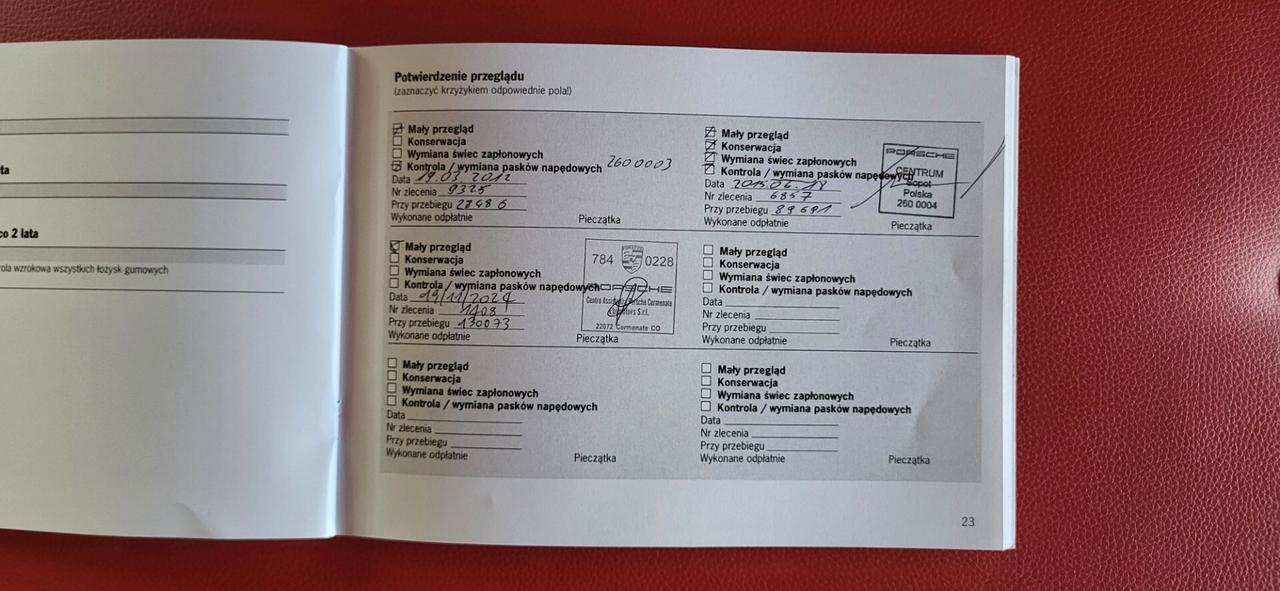 ta
co 2 lata
ola wzrokowa wszystkich łożysk gumowych
Potwierdzenie przeglądu
(zaznaczyć krzyżykiem odpowiednie pola!)
Mały przegląd
Konserwacja
Wymiana świec zapłonowych
Kontrola / wymiana pasków napędowych 2600003
Data 19.03.2012
Nr zlecenia 9325
Przy przebiegu 28486
Wykonane odpłatnie
Pieczątka
Mały przegląd
Konserwacja
Wymiana świec zapłonowych
Kontrola / wymiana pasków napędowych
Data 2015.06.18
Nr zlecenia 6857
Przy przebiegu 89691
Wykonane odpłatnie
Pieczątka
PORSCHE
CENTRUM
Sopot
Polska
260 0004
Mały przegląd
Konserwacja
Wymiana świec zapłonowych
Kontrola / wymiana pasków napędowych
Data 19/11/2024
Nr zlecenia 1408
Przy przebiegu 130073
Wykonane odpłatnie
Pieczątka
784 0228
PORSCHE
Centro Assistenza Porsche Cermenate
S.r.l.
22072 Cermenate CO
Mały przegląd
Konserwacja
Wymiana świec zapłonowych
Kontrola / wymiana pasków napędowych
Data
Nr zlecenia
Przy przebiegu
Wykonane odpłatnie
Pieczątka
Mały przegląd
Konserwacja
Wymiana świec zapłonowych
Kontrola / wymiana pasków napędowych
Data
Nr zlecenia
Przy przebiegu
Wykonane odpłatnie
Pieczątka
Mały przegląd
Konserwacja
Wymiana świec zapłonowych
Kontrola / wymiana pasków napędowych
Data
Nr zlecenia
Przy przebiegu
Wykonane odpłatnie
Pieczątka
23